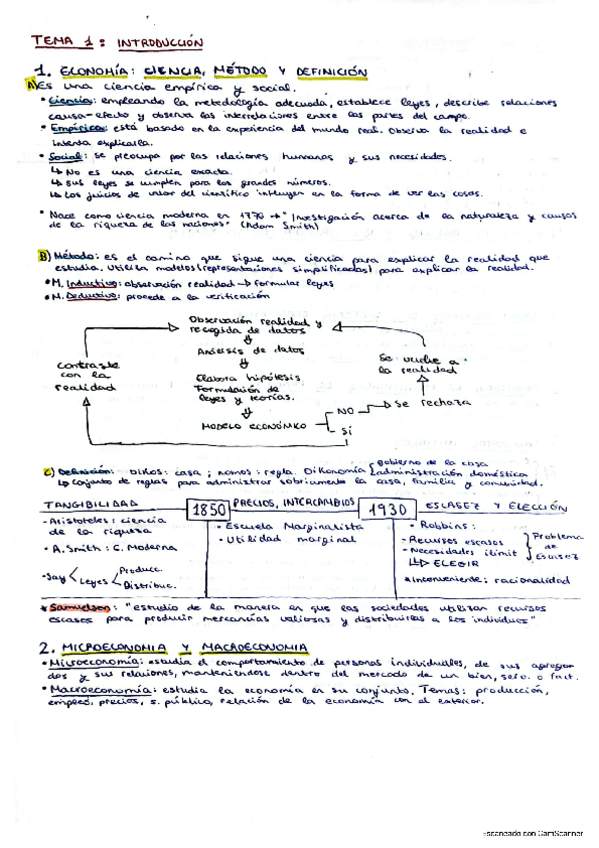 TEMA 1: INTRODUCCIÓN
1. ECONOMÍA: CIENCIA, MÉTODO Y DEFINICIÓN
A) Es una ciencia empírica y social.
• Ciencia: empleando la metodología adecuada, establece leyes, describe relaciones
causa-efecto y observa las interrelaciones entre las partes del campo.
• Empírica: está basado en la experiencia del mundo real. Observa la realidad e
intenta explicarla.
• Social: se preocupa por las relaciones humanas y sus necesidades.
↳ No es una ciencia exacta.
↳ Sus leyes se cumplen para los grandes números.
↳ Los juicios de valor del científico influyen en la forma de ver las cosas.
• Nace como ciencia moderna en 1776 → "Investigación acerca de la naturaleza y causas
de la riqueza de las naciones" (Adam Smith)
B) Método: es el camino que sigue una ciencia para explicar la realidad que
estudia. Utiliza modelos (representaciones simplificadas) para explicar la realidad.
• M. Inductivo: observación realidad → formular leyes
• M. Deductivo: procede a la verificación
Observación realidad y
recogida de datos
Análisis de datos
Elabora hipótesis
Formulación de
leyes y teorías.
MODELO ECONÓMICO
NO
SÍ
Se rechaza
Se vuelve a
la realidad
contraste
con la
realidad
C) Definición: oikos: casa; nomos: regla. Oikonomía { gobierno de la casa
administración doméstica
↳ Conjunto de reglas para administrar sobriamente la casa, familia y comunidad.
TANGIBILIDAD 1850 PRECIOS, INTERCAMBIOS 1930 ESCASEZ Y ELECCIÓN
- Aristóteles: ciencia
de la riqueza
• A. Smith: C. Moderna
- Say < Leyes < Producc.
Distribuc.
• Escuela Marginalista
• Utilidad marginal
• Robbins:
- Recursos escasos
- Necesidades ilimit
↳ ELEGIR
} Problema
de
Escasez
* Inconveniente: racionalidad
* Samuelson: "estudio de la manera en que las sociedades utilizan recursos
escasos para producir mercancías valiosas y distribuirlas a los individuos"
2. MICROECONOMIA Y MACROECONOMIA
• Microeconomía: estudia el comportamiento de personas individuales, de sus agrega-
dos y sus relaciones, manteniéndose dentro del mercado de un bien, serv. o fact.
• Macroeconomía: estudia la economía en su conjunto. Temas: producción,
empleo, precios, s. público, relación de la economía con el exterior.
Escaneado con CamScanner